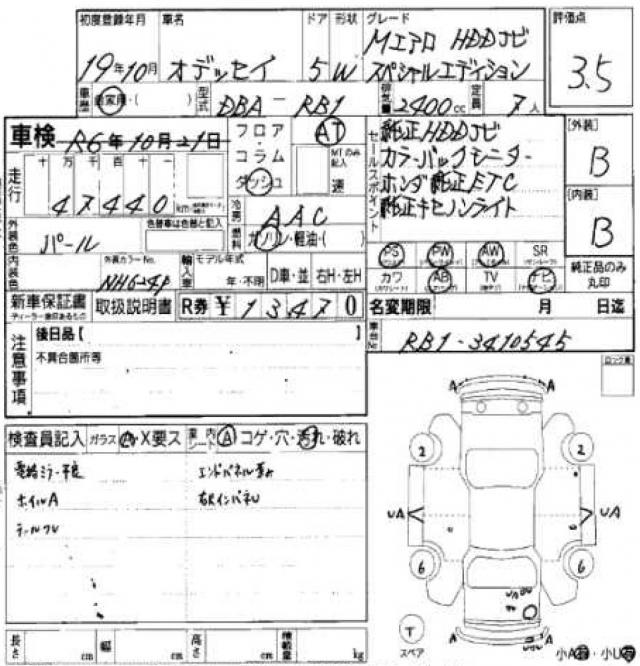 初度登録年月 車名 ドア 形状 グレード 評価点
19年10月 オデッセイ 5 W Mエアロ HDDナビ スペシャルエディション 3.5
車歴 自家用・( ) 型式 DBA-RB1 排気量 2400cc 定員 7人
車検 R6年10月21日 フロア・コラム ダッシュ AT MTのみ記入 速
セールスポイント
純正HDDナビ
カラーバックモニター
ホンダ純正ETC
純正キセノンライト
[外装] B
[内装] B
走行 十 万 千 百 十 一
47440 km
冷房 AAC
外装色 パール 色替車は色替と記入
燃料 ガソリン・軽油・( )
内装色 外装カラーNo. NH624P
輸入車 モデル年式 年・不明 D車・並 右H・左H
PS PW AW SR
カワ AB TV ナビ
純正品のみ丸印
新車保証書 取扱説明書 R券 ¥ 13470
ディーラー捺印あるもの
名変期限 月 日迄
車台No RB1-3410545
注意事項
後日品[ ]
不具合箇所等
ロック車
検査員記入 ガラス A・X要ス 室内シート A コゲ・穴・汚れ・破れ
電格ミラー不良
ホイルA
エンドパネル歪み
右RインパネU
A A
2 2
UA UA
6 6
A A
T
スペア
小A有・小U有
長さ cm 幅 cm 高さ cm 積載量 kg